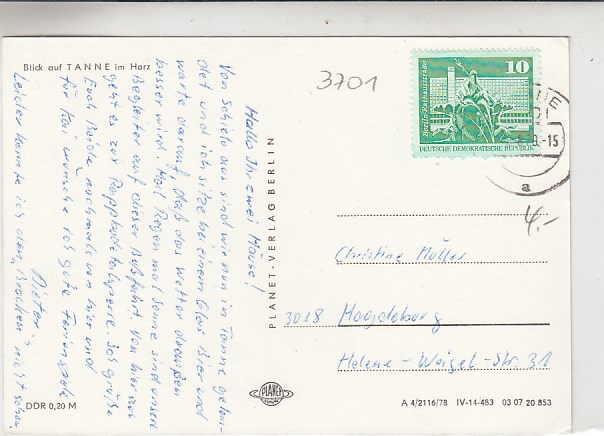 Blick auf TANNE im Harz
Hallo Ihr zwei Mäuse!
Von Schielo aus sind wir nun in Tanne gelan-
det und ich sitze bei einem Glas Bier und
warte darauf, daß das Wetter draußen
besser wird. Mal Regen mal Sonne sind unsere
Begleiter auf dieser Fahrt. Von hier aus
geht es zur Rappbodetalsperre. Ich grüße
Euch Beide nochmals von hier und
für Kai wünsche ich gute Ferienspiele
Dieter.
Leider konnte ich den "Brocken" nicht sehen.
DDR 0,20 M
PLANET-VERLAG BERLIN
PLANET
3701
10
Berlin-Rathausstraße
DEUTSCHE DEMOKRATISCHE REPUBLIK
-15
a
4,-
Christine Müller
3018 Magdeburg
Helene-Weigel-Str. 31
A 4/2116/78 IV-14-483 03 07 20 853